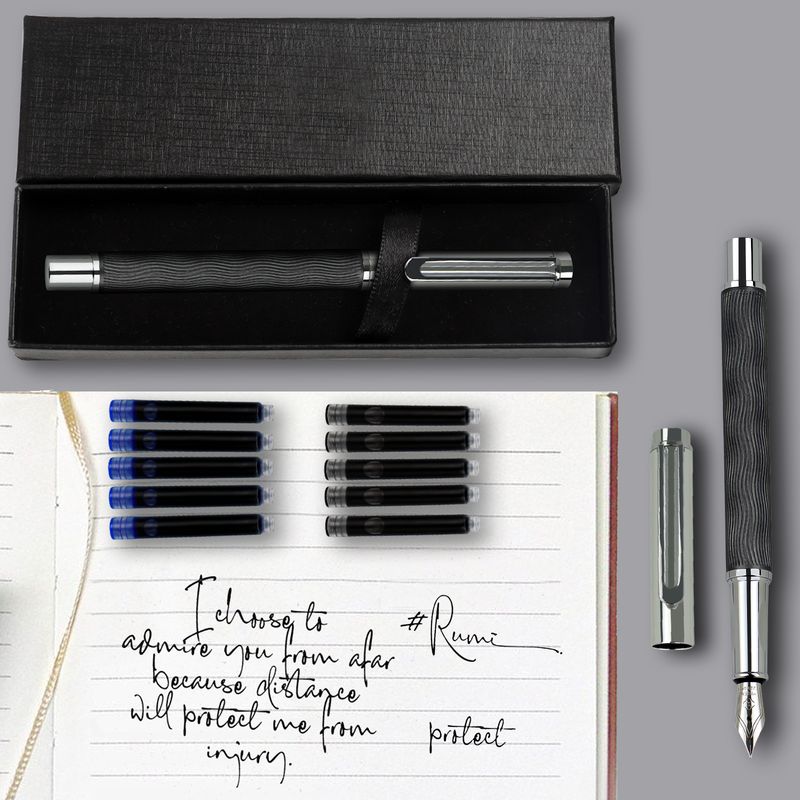 I choose to
admire you from afar
because distance
will protect me from
injury.
#Rumi
protect